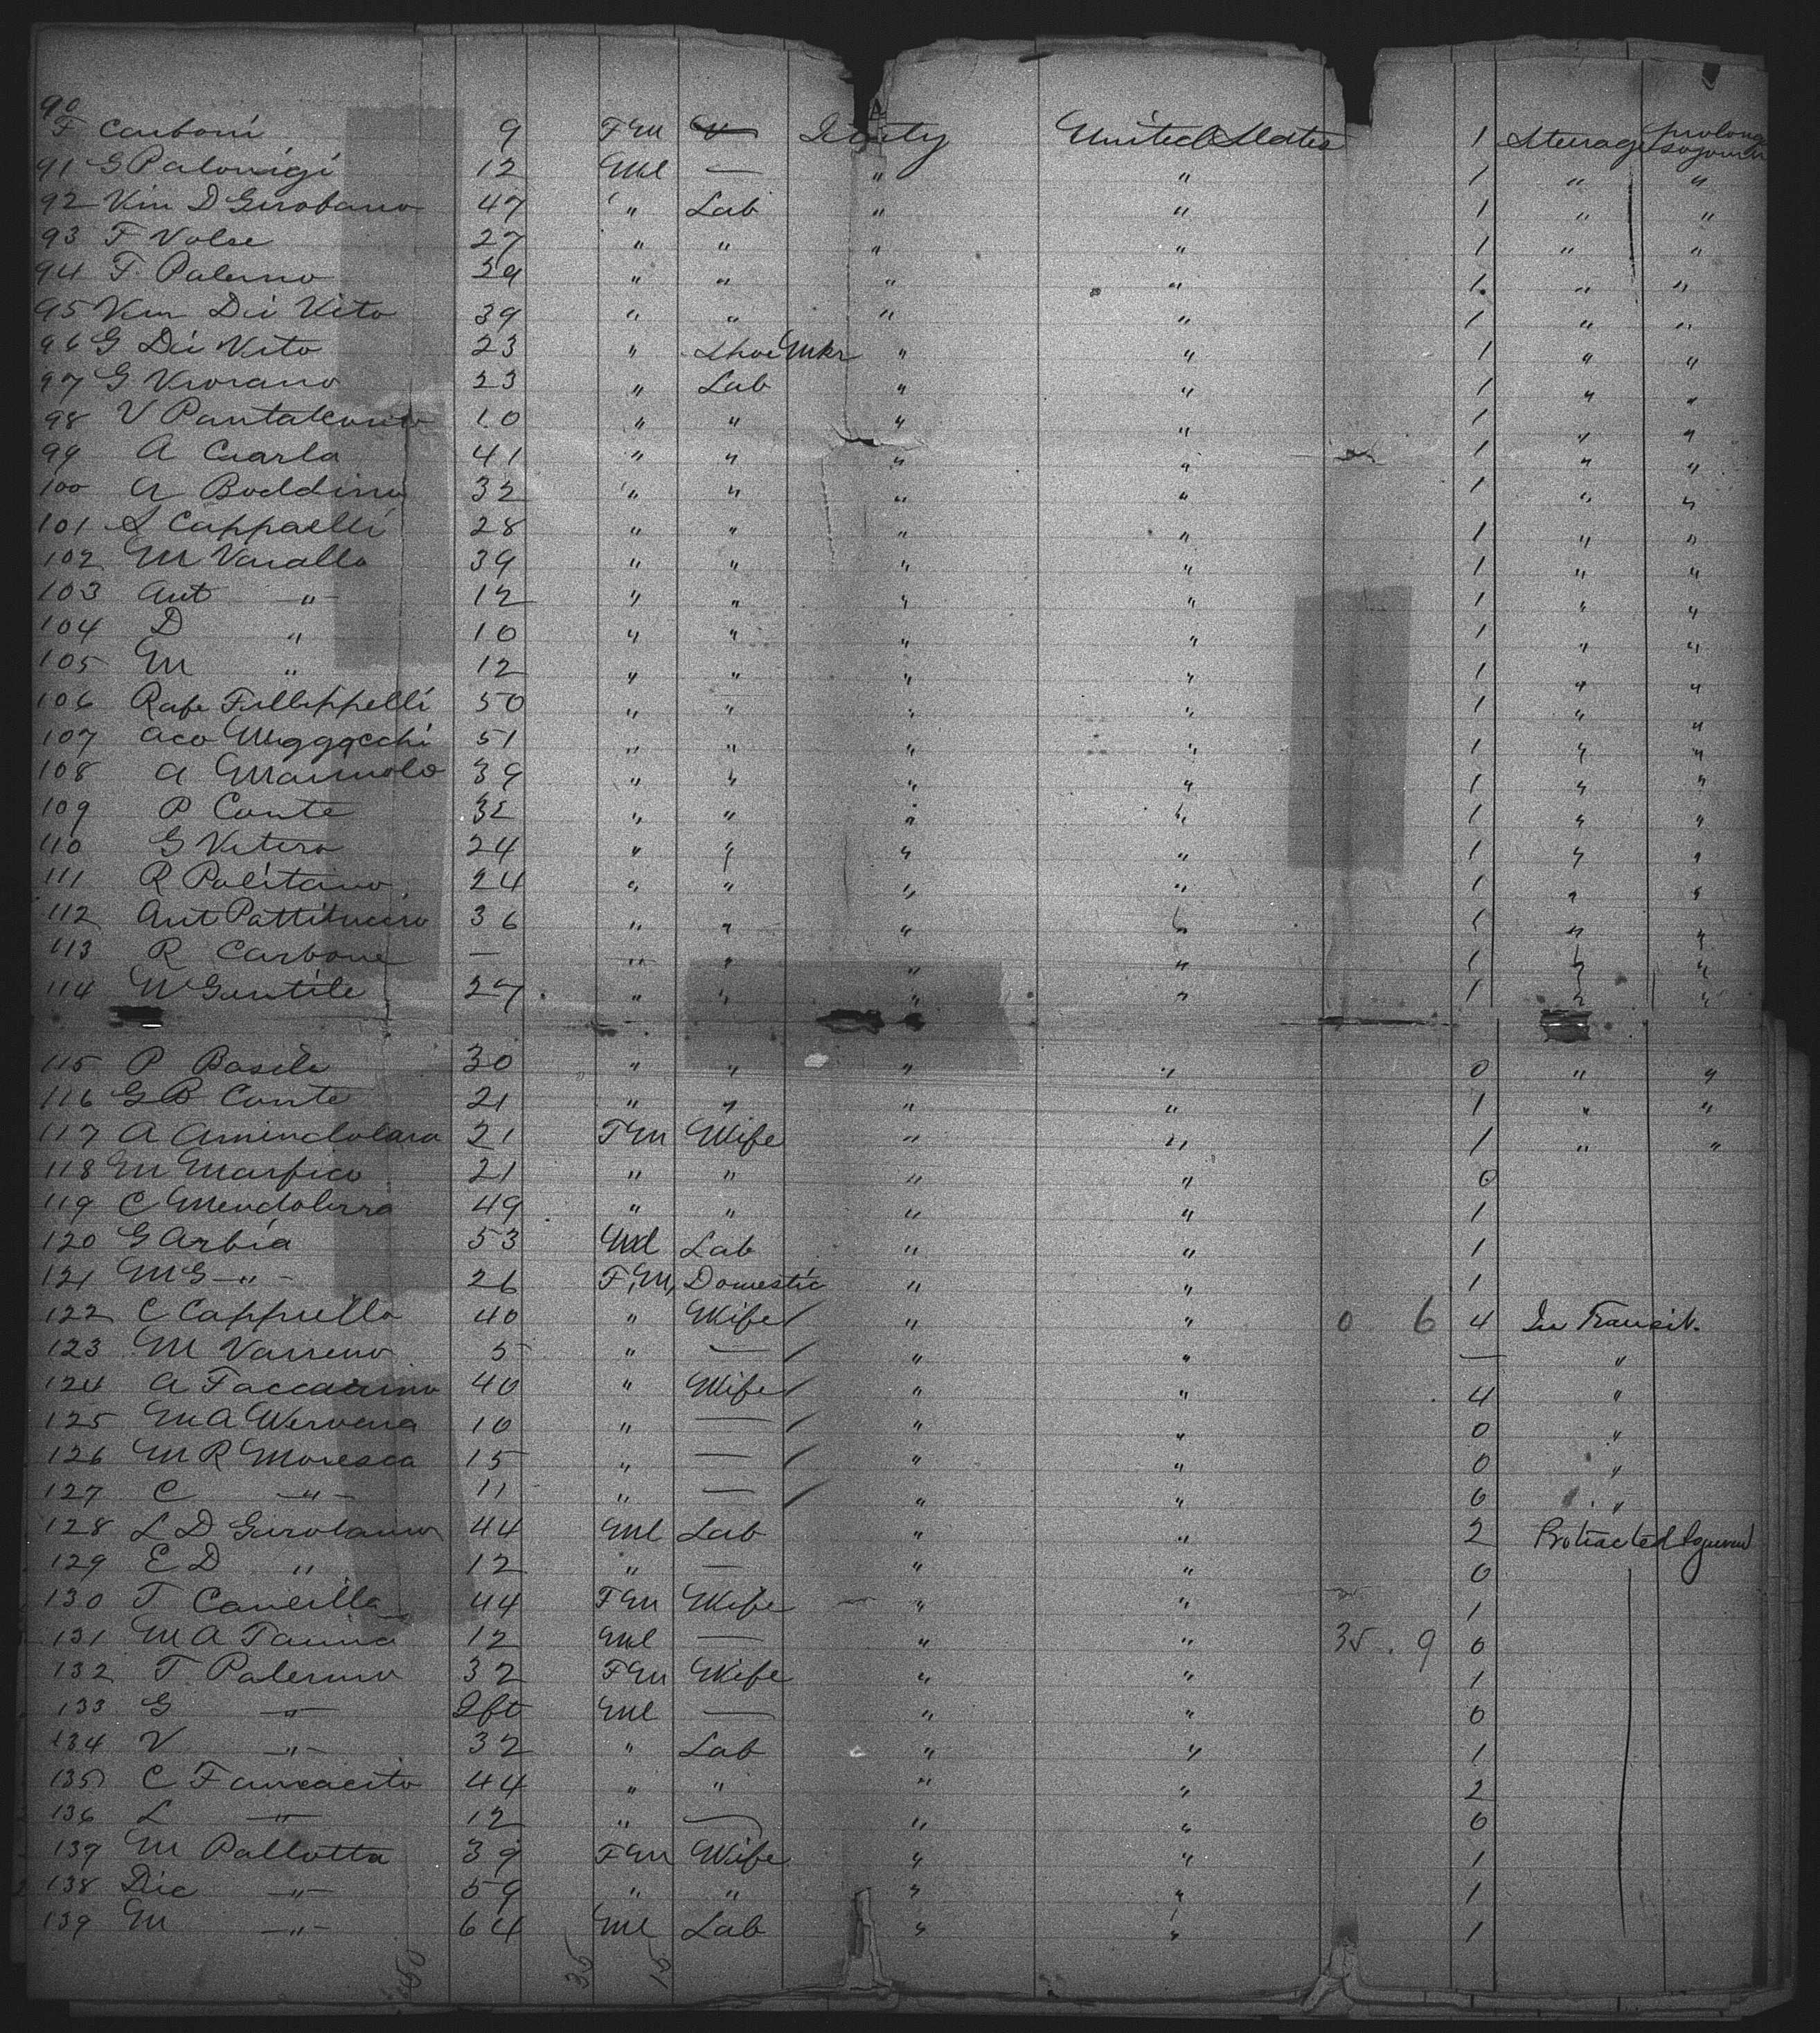 90 F Carboni 9 F M Italy United States 1 Steerage prolong sojourn
91 G Palonigi 12 Ml — " " 1 " "
92 Vin D Girobano 47 " Lab " " 1 " "
93 F Volse 27 " " " " 1 " "
94 F. Palerno 29 " " " " 1 " "
95 Vin Di Vito 39 " " " " 1 " "
96 G Di Vito 23 " Shoe Mkr " " 1 " "
97 G Viorano 23 " Lab " " 1 " "
98 V 10 " " " " 1 " "
99 A Ciarla 41 " " " " 1 " "
100 A Boddino 32 " " " " 1 " "
101 S Cappaelli 28 " " " " 1 " "
102 M Varallo 39 " " " " 1 " "
103 Ant " 12 " " " " 1 " "
104 D " 10 " " " " 1 " "
105 M " 12 " " " " 1 " "
106 Rafe Fillippelli 50 " " " " 1 " "
107 Aco 51 " " " " 1 " "
108 A 39 " " " " 1 " "
109 P Conte 32 " " " " 1 " "
110 G Vitero 24 " " " " 1 " "
111 R Politano 24 " " " " 1 " "
112 Ant 36 " " " " 1 " "
113 R Carbone — " " " " 1 " "
114 M Gentile 27 " " " " 1 " "
115 P Basile 30 " " " " 0 " "
116 G B Conte 21 " " " " 1 " "
117 A Amindolara 21 F M Wife " " 1 " "
118 M Marfico 21 " " " " 0
119 C Mendolerra 49 " " " " 1
120 G Arbia 53 Ml Lab " " 1
121 M G " 26 F, M, Domestic " " 1
122 C Cappiello 40 " Wife / " " 0 6 4 In Transit.
123 M Varreno 5 " — / " " — "
124 A 40 " Wife / " " 4 "
125 M A 10 " — / " " 0 "
126 M R Moresca 15 " — / " " 0 "
127 C " 11 " — / " " 0 "
128 L D Girolamo 44 Ml Lab " " 2 Protracted
129 E D " 12 " — " " 0
130 T 44 F M Wife " " 1
131 M A 12 Ml — " " 35. 9 0
132 T. Palermo 32 F M Wife " " 1
133 G " Ml — " " 0
134 V " 32 " Lab " " 1
135 C 44 " " " " 2
136 L " 12 " — " " 0
137 M Pallotta 39 F M Wife " " 1
138 Dic " 59 " " " " 1
139 M " 64 Ml Lab " " 1
35 15